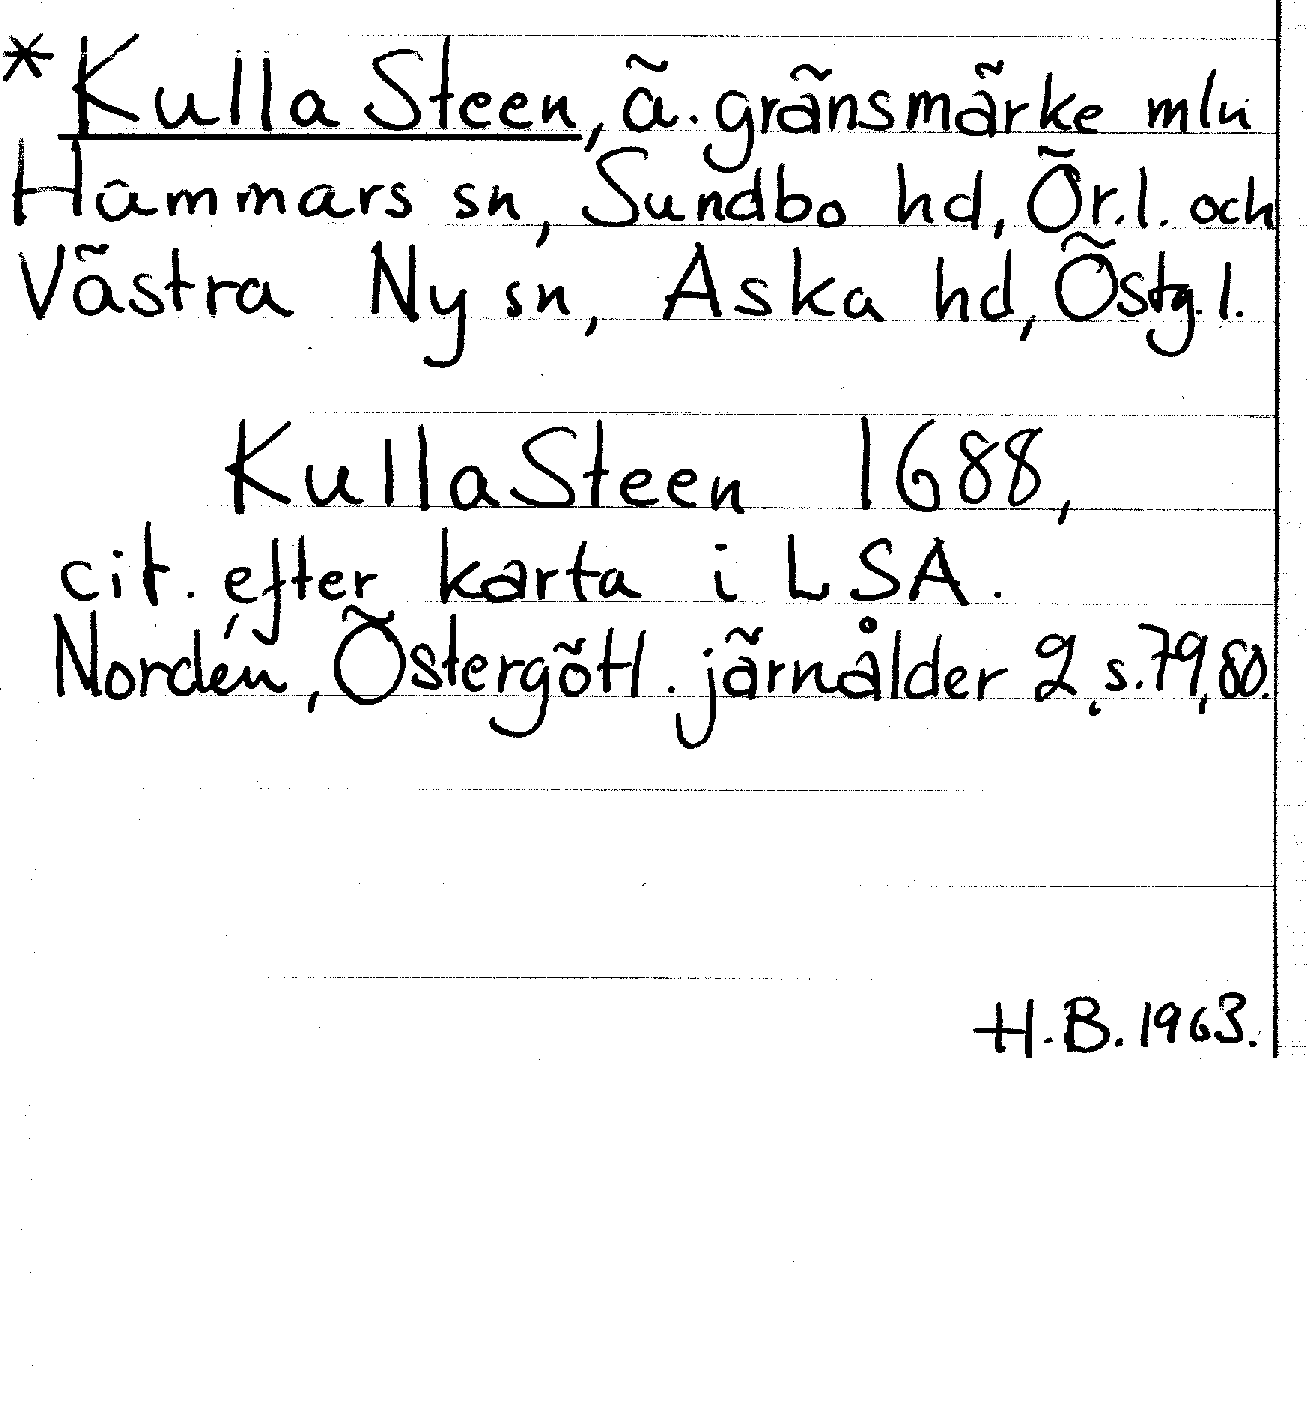 *Kulla Steen, ä. gränsmärke mln
Hammars sn, Sundbo hd, Ör.l. och
Västra Ny sn, Aska hd, Östg.l.
Kulla Steen 1688,
cit. efter karta i LSA.
Nordén, Östergötl. järnålder 2, s. 79, 80.
H.B. 1963.